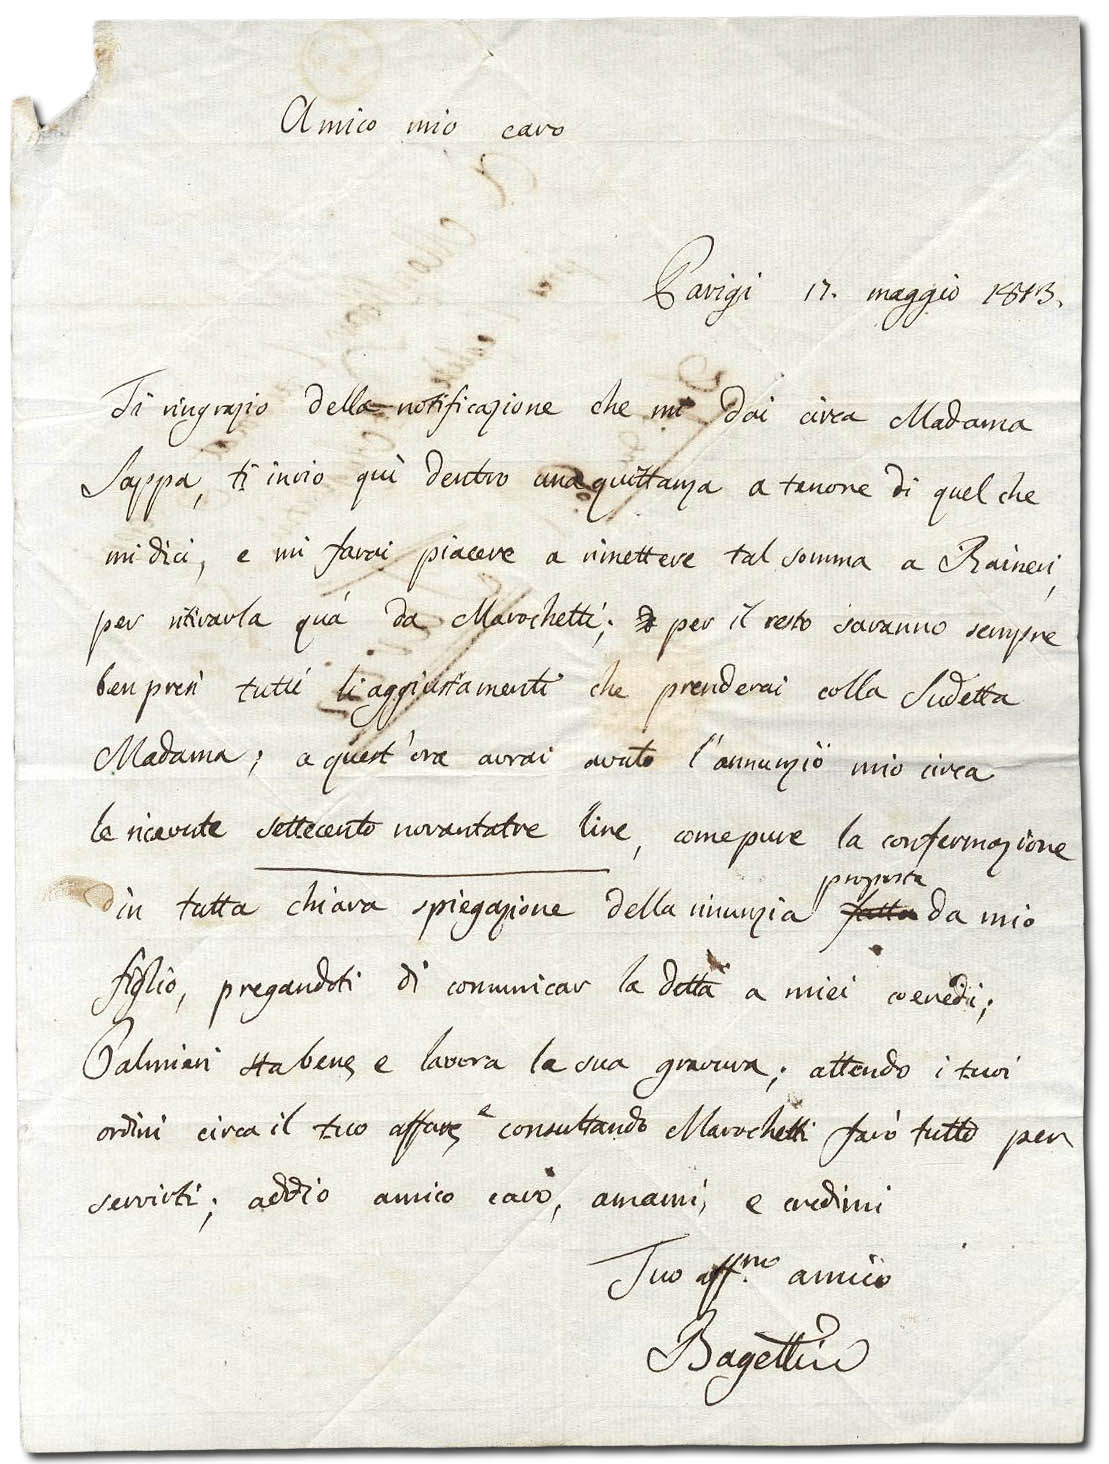 Amico mio caro
Parigi 17. maggio 1813.
Ti ringrazio della notificazione che mi dai circa Madama
Sappa, ti invio quì dentro una quittanza a tenore di quel che
mi dici, e mi farai piacere a rimettere tal somma a Raineri,
per ritirarla quá da Marochetti; per il resto saranno sempre
ben presi tutti li aggiustamenti che prenderai colla Sudetta
Madama; a quest'ora avrai avuto l'annunzio mio circa
le ricevute settecento novantatre lire, come pure la confermazione
in tutta chiara spiegazione della rinunzia fatta proposta da mio
figlio, pregandoti di comunicar la detta a miei coeredi;
Palmieri sta bene, e lavora la sua gravura; attendo i tuoi
ordini circa il tuo affare, e consultando Marochetti farò tutto per
servirti; addio amico caro, amami, e credimi
Tuo aff.mo amico
Bagetti